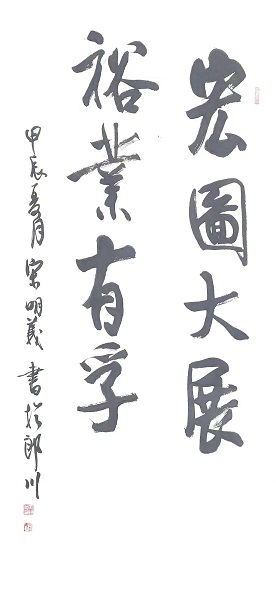 宏圖大展
裕業有孚
甲辰夏月宋明義書於郎川